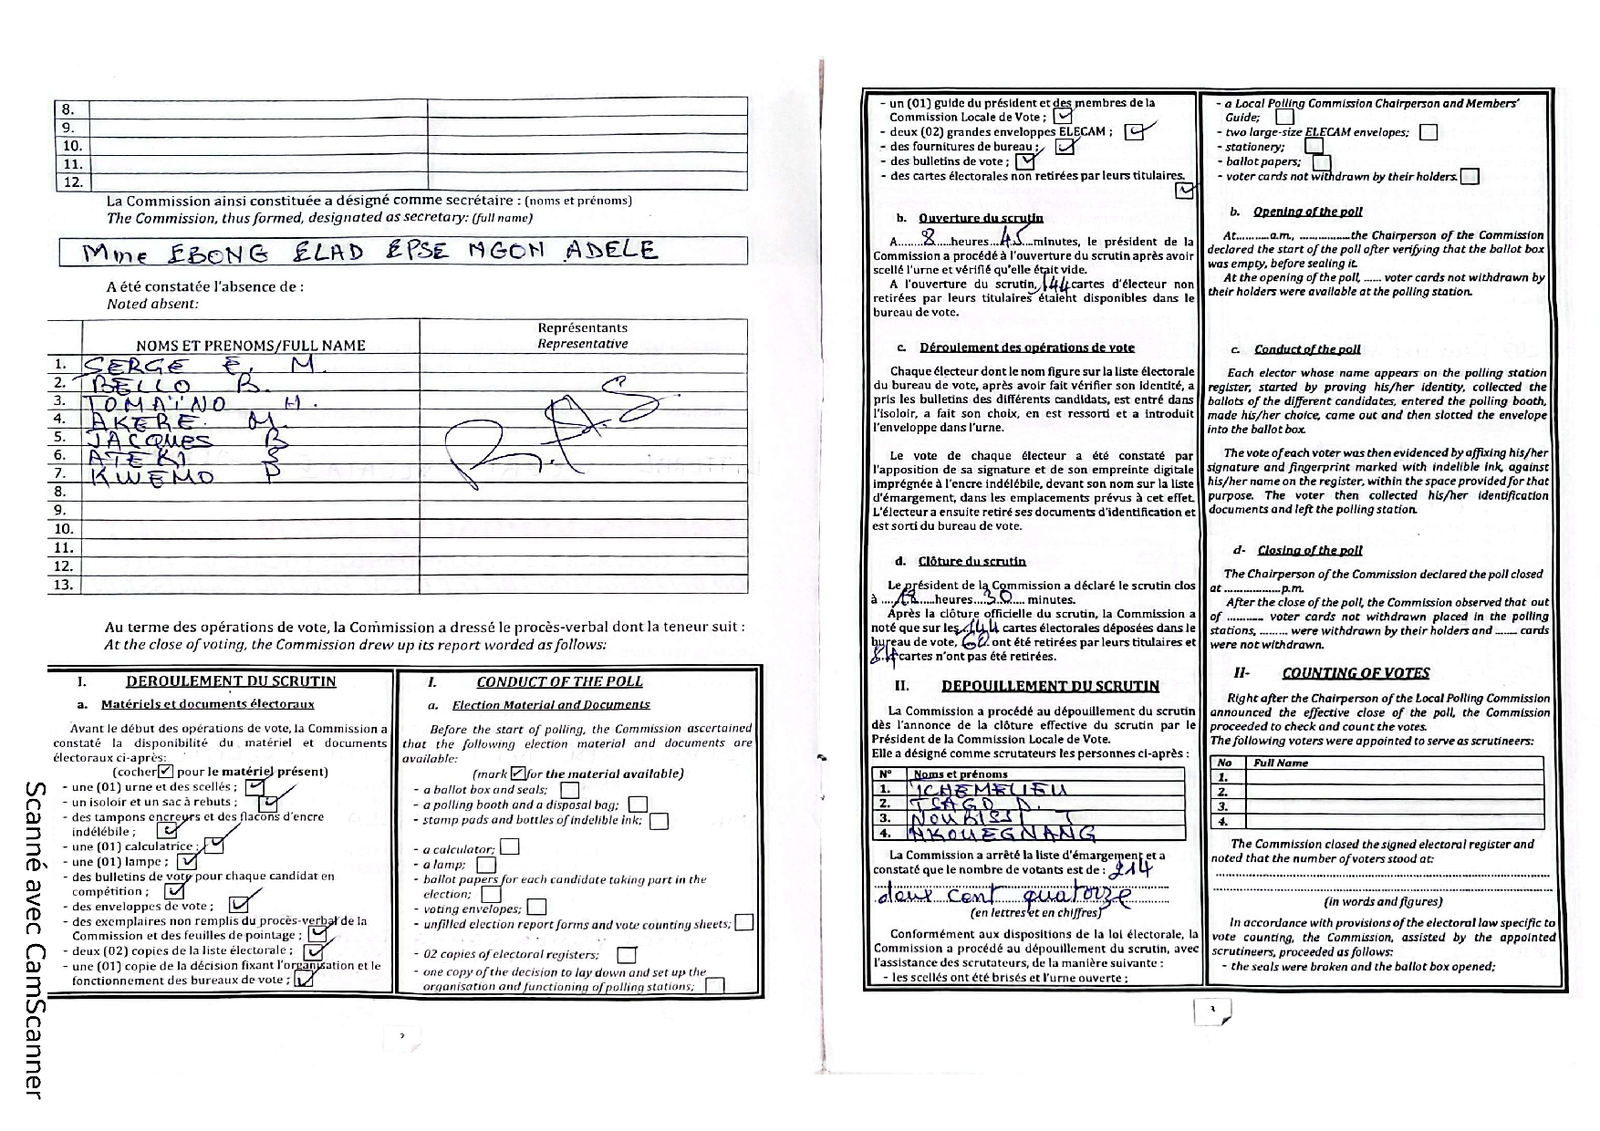 8.
9.
10.
11.
12.
La Commission ainsi constituée a désigné comme secrétaire : (noms et prénoms)
The Commission, thus formed, designated as secretary: (full name)
Mme EBONG ELAD EPSE NGON ADELE
A été constatée l'absence de :
Noted absent:
NOMS ET PRENOMS/FULL NAME
Représentants
Representative
1. SERGE E. M.
2. BELLO B.
3. TOMAÏNO H.
4. AKERE M.
5. JACQUES B
6. ATEKI S
7. KWEMO P
R.A.S
8.
9.
10.
11.
12.
13.
Au terme des opérations de vote, la Commission a dressé le procès-verbal dont la teneur suit :
At the close of voting, the Commission drew up its report worded as follows:
I. DEROULEMENT DU SCRUTIN
a. Matériels et documents électoraux
Avant le début des opérations de vote, la Commission a
constaté la disponibilité du matériel et documents
électoraux ci-après:
(cocher ☑ pour le matériel présent)
- une (01) urne et des scellés ; ☑
- un isoloir et un sac à rebuts ; ☑
- des tampons encreurs et des flacons d'encre
indélébile ; ☑
- une (01) calculatrice ; ☑
- une (01) lampe ; ☑
- des bulletins de vote pour chaque candidat en
compétition ; ☑
- des enveloppes de vote ; ☑
- des exemplaires non remplis du procès-verbal de la
Commission et des feuilles de pointage ; ☑
- deux (02) copies de la liste électorale ; ☑
- une (01) copie de la décision fixant l'organisation et le
fonctionnement des bureaux de vote ; ☑
I. CONDUCT OF THE POLL
a. Election Material and Documents
Before the start of polling, the Commission ascertained
that the following election material and documents are
available:
(mark ☑ for the material available)
- a ballot box and seals; ☐
- a polling booth and a disposal bag; ☐
- stamp pads and bottles of indelible ink; ☐
- a calculator; ☐
- a lamp; ☐
- ballot papers for each candidate taking part in the
election; ☐
- voting envelopes; ☐
- unfilled election report forms and vote counting sheets; ☐
- 02 copies of electoral registers; ☐
- one copy of the decision to lay down and set up the
organisation and functioning of polling stations; ☐
2
Scanné avec CamScanner
- un (01) guide du président et des membres de la
Commission Locale de Vote ; ☑
- deux (02) grandes enveloppes ELECAM ; ☑
- des fournitures de bureau ; ☑
- des bulletins de vote ; ☑
- des cartes électorales non retirées par leurs titulaires. ☑
b. Ouverture du scrutin
A........8......heures...45...minutes, le président de la
Commission a procédé à l'ouverture du scrutin après avoir
scellé l'urne et vérifié qu'elle était vide.
A l'ouverture du scrutin, 144 cartes d'électeur non
retirées par leurs titulaires étaient disponibles dans le
bureau de vote.
c. Déroulement des opérations de vote
Chaque électeur dont le nom figure sur la liste électorale
du bureau de vote, après avoir fait vérifier son identité, a
pris les bulletins des différents candidats, est entré dans
l'isoloir, a fait son choix, en est ressorti et a introduit
l'enveloppe dans l'urne.
Le vote de chaque électeur a été constaté par
l'apposition de sa signature et de son empreinte digitale
imprégnée à l'encre indélébile, devant son nom sur la liste
d'émargement, dans les emplacements prévus à cet effet.
L'électeur a ensuite retiré ses documents d'identification et
est sorti du bureau de vote.
d. Clôture du scrutin
Le président de la Commission a déclaré le scrutin clos
à .....18.....heures....30.... minutes.
Après la clôture officielle du scrutin, la Commission a
noté que sur les 144 cartes électorales déposées dans le
bureau de vote, 60 ont été retirées par leurs titulaires et
84 cartes n'ont pas été retirées.
II. DEPOUILLEMENT DU SCRUTIN
La Commission a procédé au dépouillement du scrutin
dès l'annonce de la clôture effective du scrutin par le
Président de la Commission Locale de Vote.
Elle a désigné comme scrutateurs les personnes ci-après :
N° Noms et prénoms
1. TCHEMELIEU
2. TSAGO D.
3. NOUBISSI J
4. NKOUEGNANG
La Commission a arrêté la liste d'émargement et a
constaté que le nombre de votants est de : 214
deux cent quatorze
(en lettres et en chiffres)
Conformément aux dispositions de la loi électorale, la
Commission a procédé au dépouillement du scrutin, avec
l'assistance des scrutateurs, de la manière suivante :
- les scellés ont été brisés et l'urne ouverte ;
- a Local Polling Commission Chairperson and Members'
Guide; ☐
- two large-size ELECAM envelopes; ☐
- stationery; ☐
- ballot papers; ☐
- voter cards not withdrawn by their holders. ☐
b. Opening of the poll
At............a.m., ..................the Chairperson of the Commission
declared the start of the poll after verifying that the ballot box
was empty, before sealing it.
At the opening of the poll, ...... voter cards not withdrawn by
their holders were available at the polling station.
c. Conduct of the poll
Each elector whose name appears on the polling station
register, started by proving his/her identity, collected the
ballots of the different candidates, entered the polling booth,
made his/her choice, came out and then slotted the envelope
into the ballot box.
The vote of each voter was then evidenced by affixing his/her
signature and fingerprint marked with indelible ink, against
his/her name on the register, within the space provided for that
purpose. The voter then collected his/her identification
documents and left the polling station.
d- Closing of the poll
The Chairperson of the Commission declared the poll closed
at ..................p.m.
After the close of the poll, the Commission observed that out
of ........... voter cards not withdrawn placed in the polling
stations, ......... were withdrawn by their holders and ....... cards
were not withdrawn.
II- COUNTING OF VOTES
Right after the Chairperson of the Local Polling Commission
announced the effective close of the poll, the Commission
proceeded to check and count the votes.
The following voters were appointed to serve as scrutineers:
No Full Name
1.
2.
3.
4.
The Commission closed the signed electoral register and
noted that the number of voters stood at:
(in words and figures)
In accordance with provisions of the electoral law specific to
vote counting, the Commission, assisted by the appointed
scrutineers, proceeded as follows:
- the seals were broken and the ballot box opened;
3